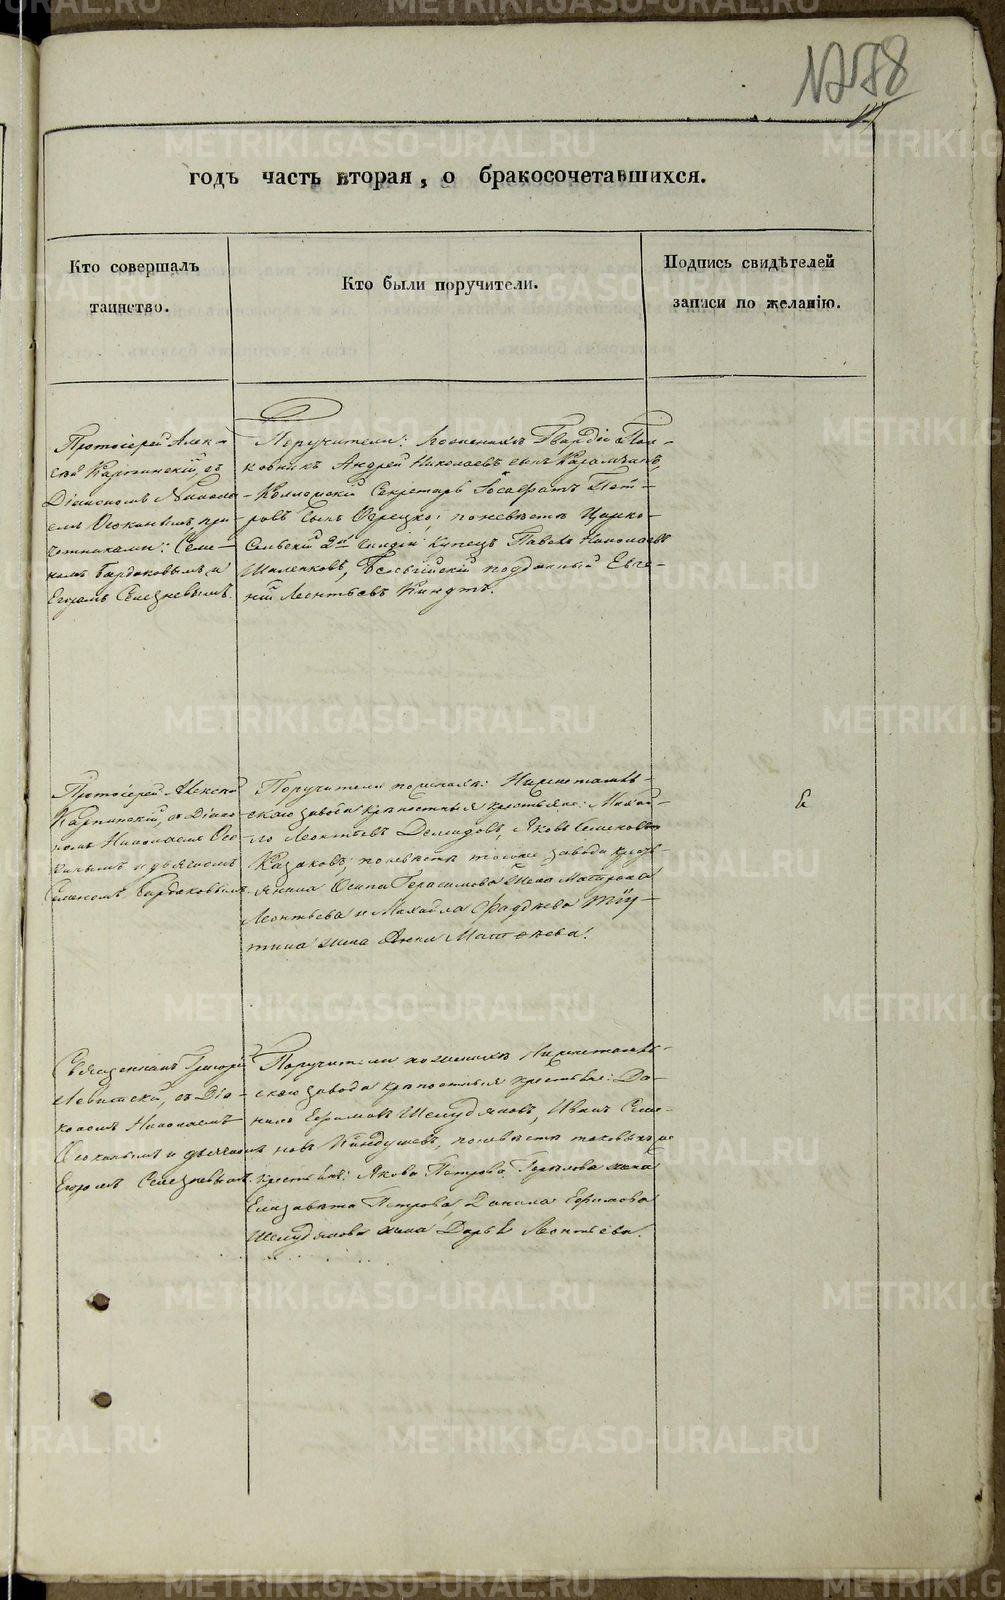 278
годъ часть вторая, о бракосочетавшихся.
Кто совершалъ
таинство.
Кто были поручители.
Подпись свидѣтелей
записи по желанію.
Протоіерей Алек-
сѣй Карпинскій, съ
Діакономъ Никола-
емъ Осокинымъ, при-
четниками: Семе-
номъ Бардаковымъ и
Егоромъ Селезневымъ.
Поручители: Гвардіи Пол-
ковникъ Андрей Николаевъ сынъ Карамзинъ,
Секретарь Пет-
ровъ сынъ по невѣстѣ Царско-
Сельскій 2й гильдіи Купецъ Павелъ Николаевъ
Шиленковъ, Бельгійскій подданный Евге-
ній Леонтьевъ Киндтъ.
Протоіерей Алексѣй
Карпинскій, съ Діако-
номъ Николаемъ Осо-
кинымъ и дьячкомъ
Семеномъ Бардаковымъ
Поручители по женихѣ: Нижнетагиль-
скаго завода крѣпостныя крестьяне: Михай-
ло Леонтьевъ Демидовъ, Яковъ Семеновъ
Казаковъ; по невѣстѣ того же завода кресть-
янина Осипа Герасимова жена Матрона
Леонтьева и Михайла Фаддѣева
тина жена Анна Матвѣева.
Священникъ Григорій
Левитскій, съ Діа-
кономъ Николаемъ
Осокинымъ и дьячкомъ
Егоромъ Селезневымъ.
Поручители по женихѣ Нижнетагиль-
скаго завода крѣпостныя крестьяне: Да-
нило Ефимовъ Шелудяковъ, Иванъ Семе-
новъ по невѣстѣ таковыхъ же
крестьянъ: Якова Петрова жена
Елизавета Петрова, Данила Ефимова
Шелудякова жена Дарья Леонтьева.
METRIKI.GASO-URAL.RU